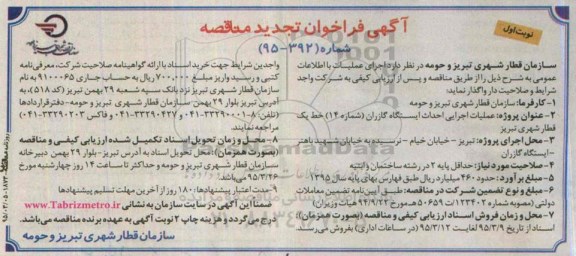 آگهی فراخوان تجدید مناقصه
شماره (۳۹۲-۹۵)
نوبت اول
سازمان قطار شهری تبریز و حومه در نظر دارد اجرای عملیات با اطلاعات
عمومی به شرح ذیل را از طریق مناقصه و پس از ارزیابی کیفی به شرکت واجد
شرایط و صلاحیت دار واگذار نماید:
۱- کارفرما: سازمان قطار شهری تبریز و حومه
۲- عنوان پروژه: عملیات اجرایی احداث ایستگاه گازران (شماره ۱۴) خط یک
قطار شهری تبریز
۳- محل اجرای پروژه: تبریز - خیابان خیام - نرسیده به خیابان شهید باهنر
- ایستگاه گازران
۴- صلاحیت مورد نیاز: حداقل پایه ۲ در رشته ساختمان و ابنیه
۵- مبلغ برآورد: حدود ۴۶۰ میلیارد ریال طبق فهارس بهای پایه سال ۱۳۹۵
۶- مبلغ و نوع تضمین شرکت در مناقصه: طبق آیین نامه تضمین معاملات
دولتی (مصوبه شماره ۱۲۳۴۰۲/ت۵۰۶۵۹هـ مورخ ۹۴/۹/۲۲ هیات وزیران)
۷- محل و زمان فروش اسناد ارزیابی کیفی و مناقصه (بصورت همزمان):
اسناد از تاریخ ۹۵/۳/۹ لغایت ۹۵/۳/۱۲ (در ساعات اداری) بفروش می رسد.
واجدین شرایط جهت خرید اسناد با ارائه گواهینامه صلاحیت شرکت، معرفی نامه
کتبی و رسید واریز مبلغ ۷۰۰،۰۰۰ ریال به حساب جاری ۹۱۰۰۰۶۵ به نام
سازمان قطار شهری تبریز نزد بانک سپه شعبه ۲۹ بهمن تبریز (کد ۵۱۸)، به
آدرس تبریز بلوار ۲۹ بهمن سازمان قطار شهری تبریز و حومه - دفتر قراردادها
(تلفن: ۸-۳۳۲۹۰۰۰۱-۰۴۱ و ۳۳۲۹۰۴۲۷-۰۴۱ و فاکس ۳۳۲۹۰۲۰۳-۰۴۱)
مراجعه نمایند.
۸- محل و زمان تحویل اسناد تکمیل شده ارزیابی کیفی و مناقصه
(بصورت همزمان): محل تحویل اسناد به آدرس تبریز- بلوار ۲۹ بهمن دبیرخانه
سازمان قطار شهری تبریز و حومه و حداکثر تا ساعت ۱۴ روز چهارشنبه مورخ
۹۵/۳/۲۶ می باشد.
۹- مدت اعتبار پیشنهادها: ۱۸۰ روز از آخرین مهلت تسلیم پیشنهادها
ضمنا این آگهی در سایت سازمان به نشانی www.Tabrizmetro.ir
درج می گردد و هزینه چاپ ۲ نوبت آگهی به عهده برنده مناقصه می باشد.
سازمان قطار شهری تبریز و حومه